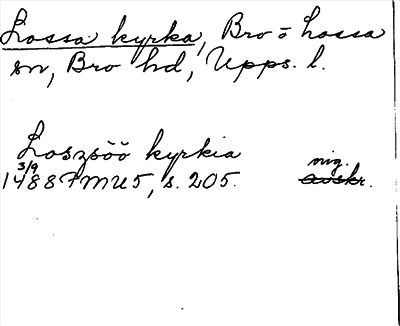 Lossa kyrka, Bro o Lossa
sn, Bro hd, Upps. l.
Loszsöö kyrkia
3/9
1488 FMU 5, s. 205. avskr.